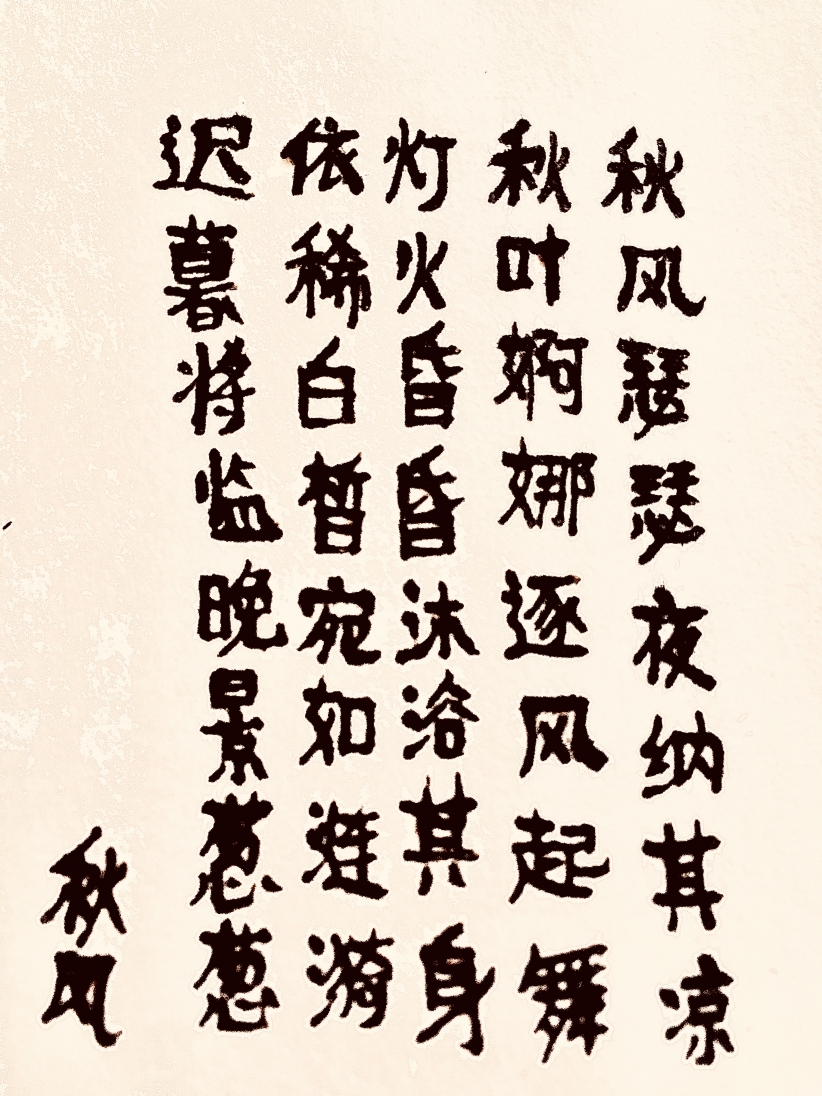 秋风瑟瑟夜纳其凉
秋叶婀娜逐风起舞
灯火昏昏沐浴其身
依稀白皙宛如涟漪
迟暮将监晚景葱葱
秋风